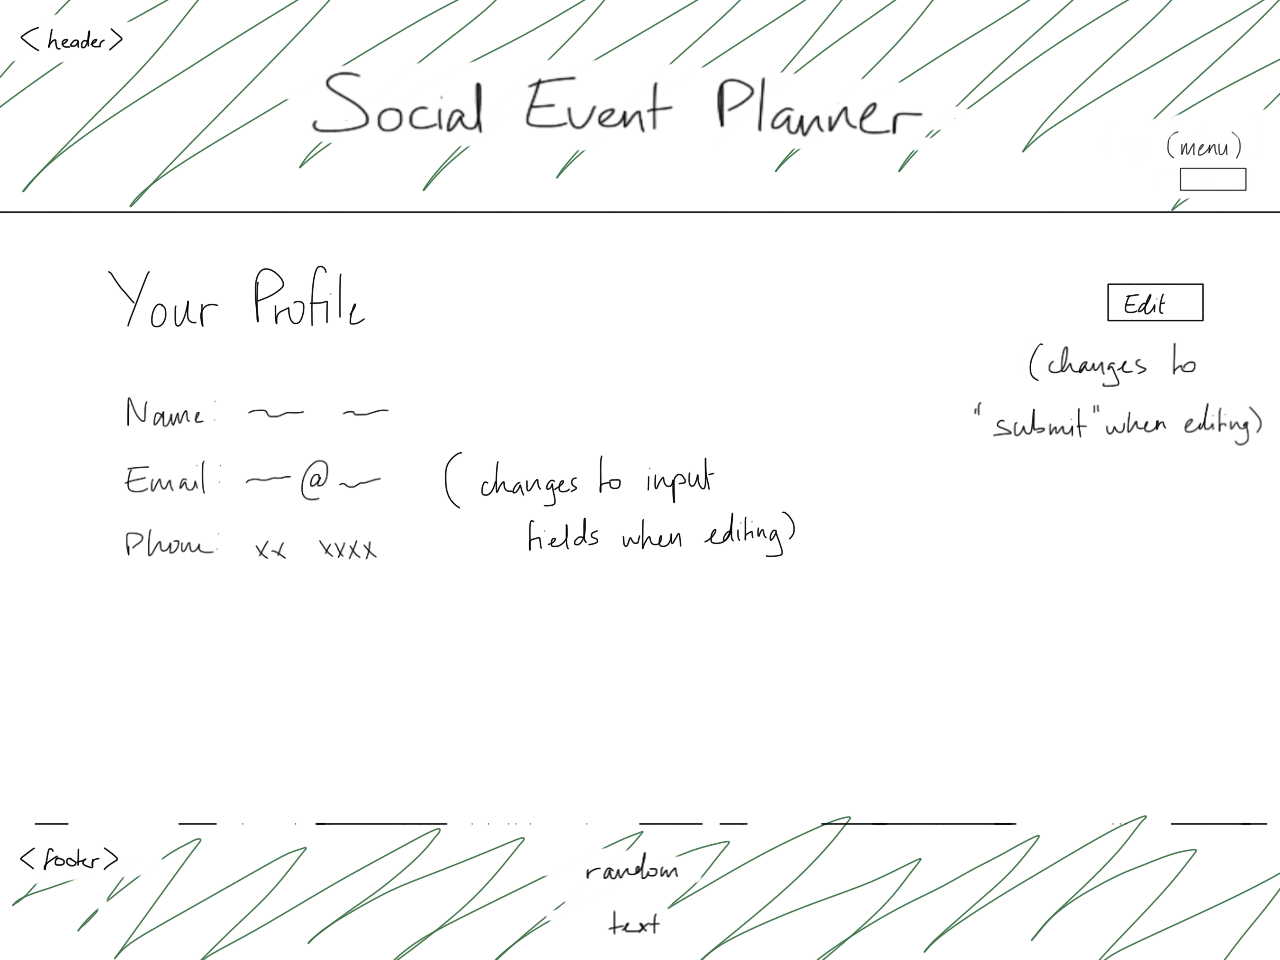 <header>
Social Event Planner
(menu)
Your Profile
Edit
(changes to
"submit" when editing)
Name:
Email: @
(changes to input
fields when editing)
Phone: xx xxxx
<footer>
random
text